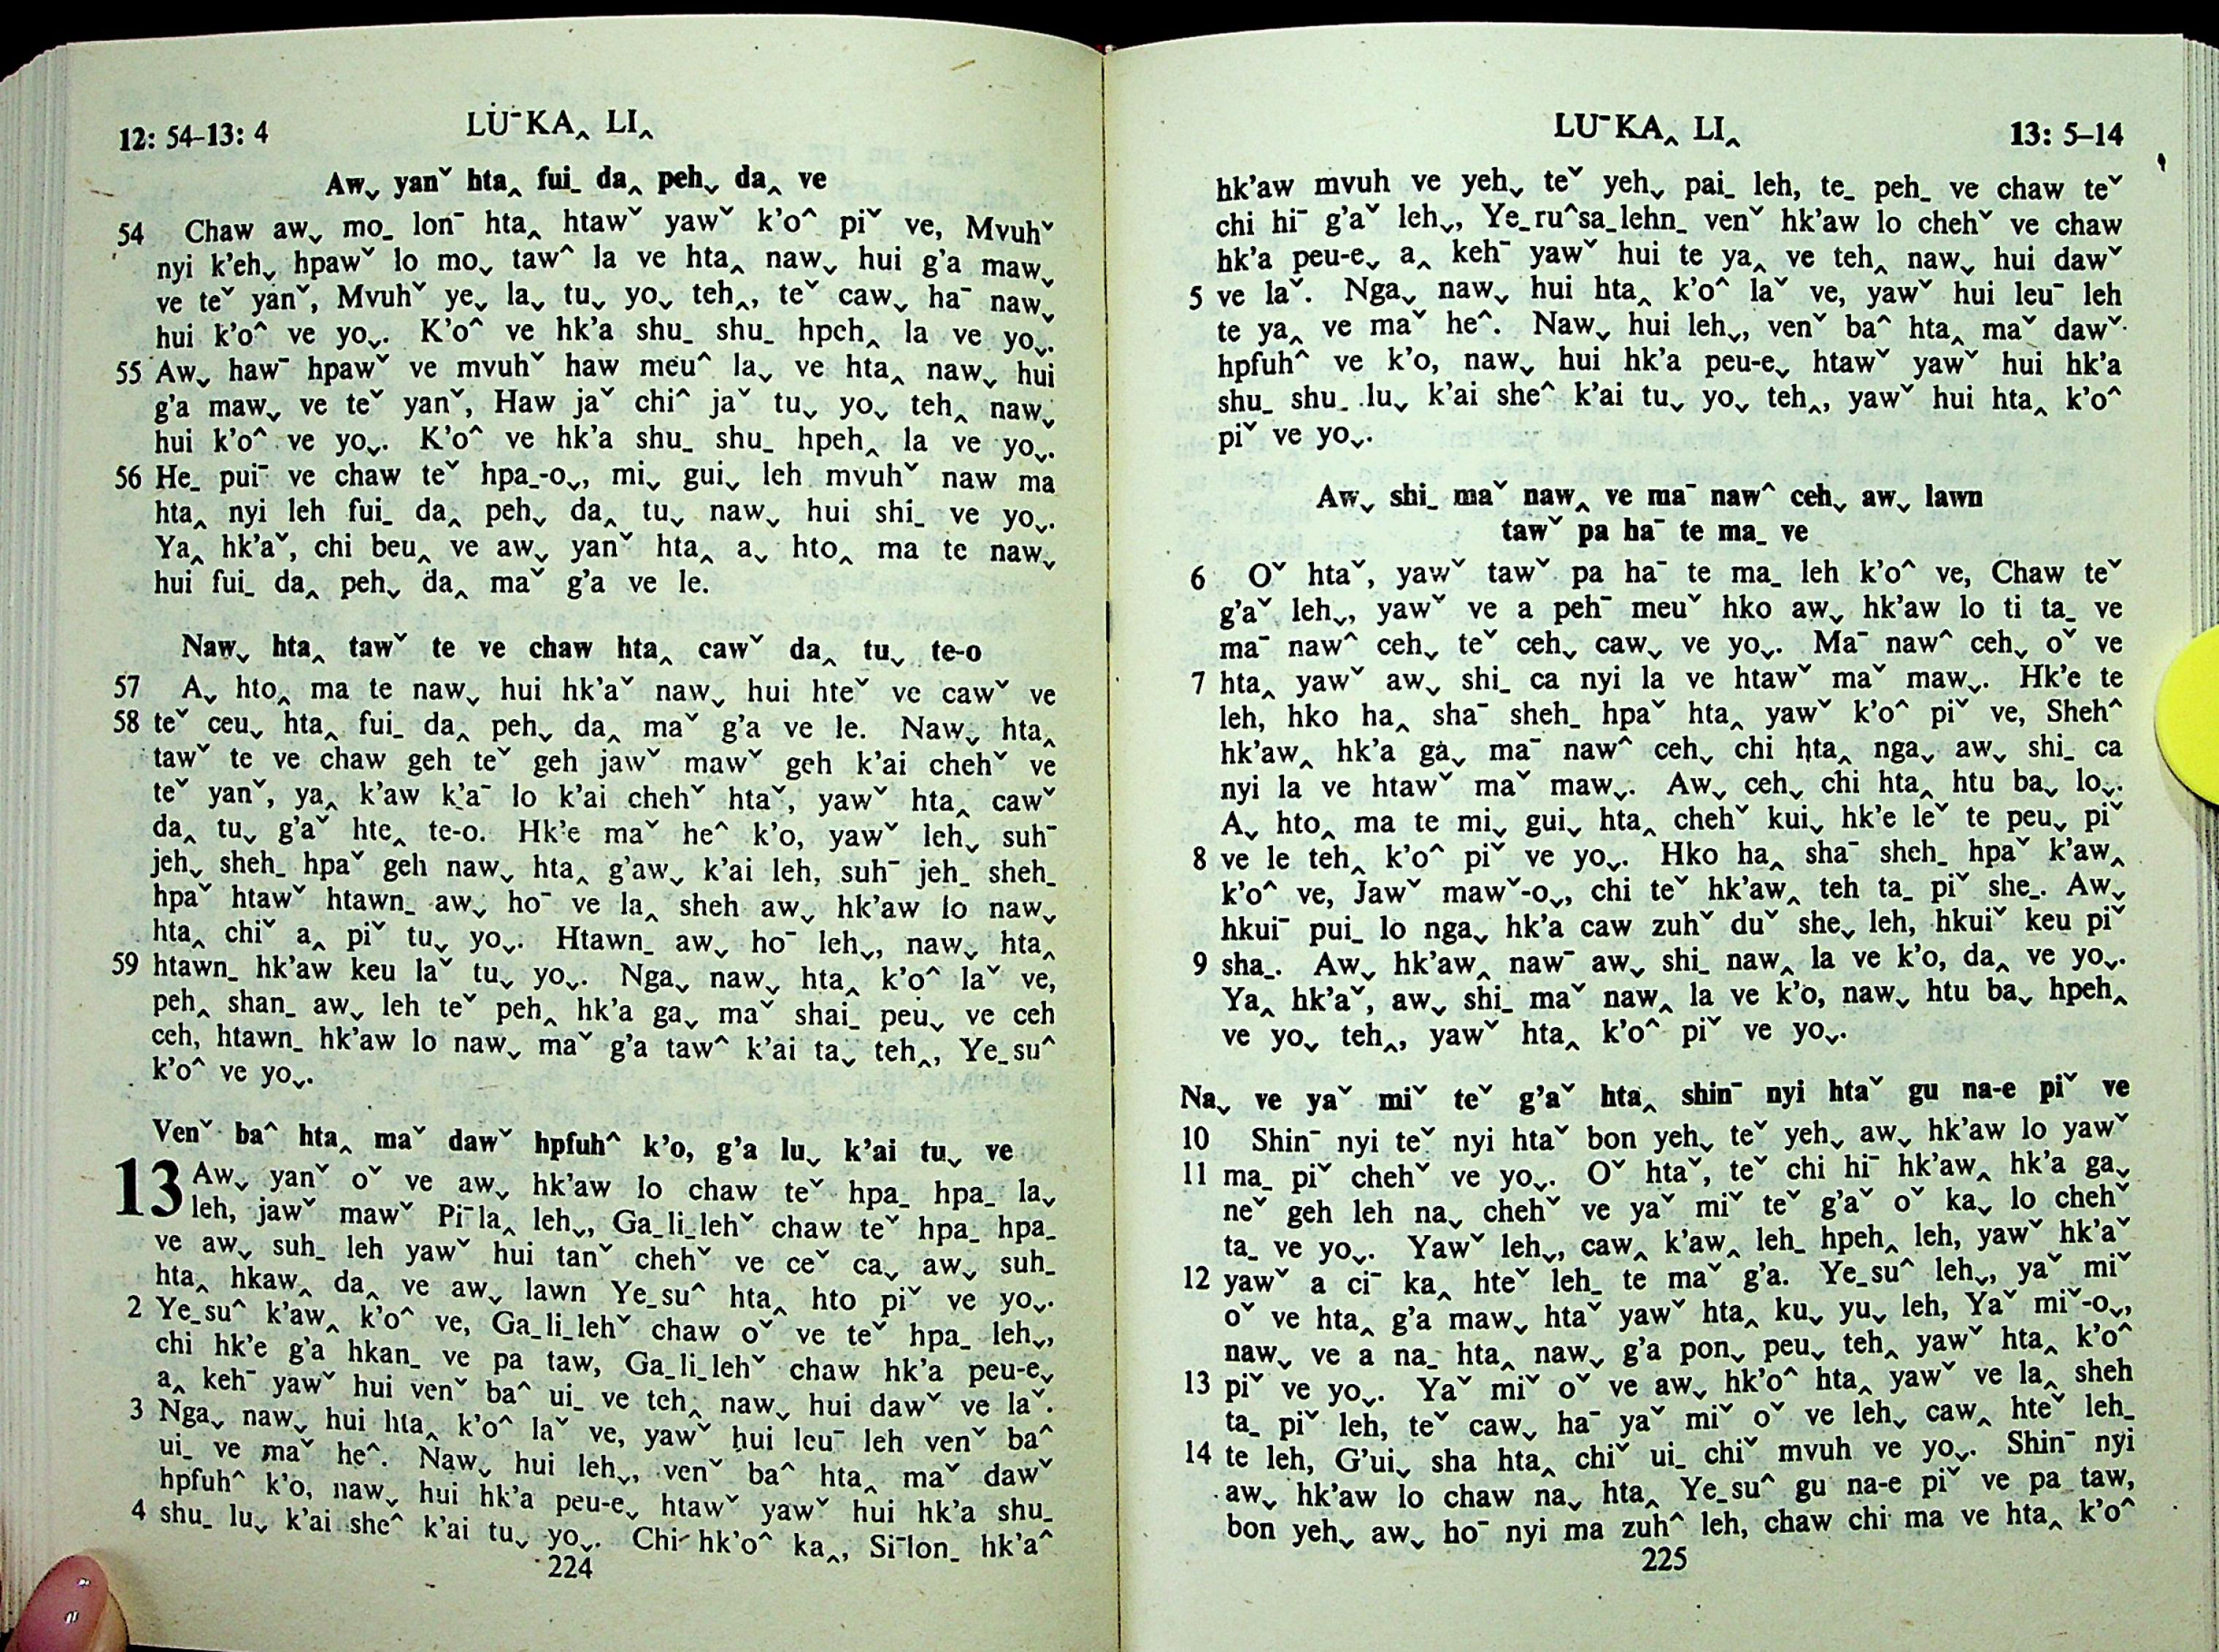 12: 54–13: 4
LU¯KA‸ LI‸
Aw˯ yanˇ hta‸ fui_ da‸ peh˯ da‸ ve
54 Chaw aw˯ mo_ lon¯ hta‸ htawˇ yawˇ k'o^ piˇ ve, Mvuhˇ
nyi k'eh˯ hpawˇ lo mo˯ taw^ la ve hta‸ naw˯ hui g'a maw˯
ve teˇ yanˇ, Mvuhˇ ye˯ la˯ tu˯ yo˯ teh‸, teˇ caw˯ ha¯ naw˯
hui k'o^ ve yo˯. K'o^ ve hk'a shu_ shu_ hpeh‸ la ve yo˯.
55 Aw˯ haw¯ hpawˇ ve mvuhˇ haw meu^ la˯ ve hta‸ naw˯ hui
g'a maw˯ ve teˇ yanˇ, Haw jaˇ chi^ jaˇ tu˯ yo˯ teh‸ naw˯
hui k'o^ ve yo˯. K'o^ ve hk'a shu_ shu_ hpeh‸ la ve yo˯.
56 He_ pui¯ ve chaw teˇ hpa_-o˯, mi˯ gui˯ leh mvuhˇ naw ma
hta‸ nyi leh fui_ da‸ peh˯ da‸ tu˯ naw˯ hui shi_ ve yo˯.
Ya‸ hk'aˇ, chi beu‸ ve aw˯ yanˇ hta‸ a˯ hto‸ ma te naw˯
hui fui_ da‸ peh˯ da‸ maˇ g'a ve le.
Naw˯ hta‸ tawˇ te ve chaw hta‸ cawˇ da‸ tu˯ te-o
57 A˯ hto‸ ma te naw˯ hui hk'aˇ naw˯ hui hteˇ ve cawˇ ve
58 teˇ ceu˯ hta‸ fui_ da‸ peh˯ da‸ maˇ g'a ve le. Naw˯ hta‸
tawˇ te ve chaw geh teˇ geh jawˇ mawˇ geh k'ai chehˇ ve
teˇ yanˇ, ya‸ k'aw k'a¯ lo k'ai chehˇ htaˇ, yawˇ hta‸ cawˇ
da‸ tu˯ g'aˇ hte‸ te-o. Hk'e maˇ he^ k'o, yawˇ leh˯ suh¯
jeh˯ sheh_ hpaˇ geh naw˯ hta‸ g'aw˯ k'ai leh, suh¯ jeh_ sheh_
hpaˇ htawˇ htawn_ aw˯ ho¯ ve la‸ sheh aw˯ hk'aw lo naw˯
hta‸ chiˇ a‸ piˇ tu˯ yo˯. Htawn_ aw˯ ho¯ leh˯, naw˯ hta‸
59 htawn_ hk'aw keu laˇ tu˯ yo˯. Nga˯ naw˯ hta‸ k'o^ laˇ ve,
peh‸ shan_ aw˯ leh teˇ peh‸ hk'a ga˯ maˇ shai_ peu˯ ve ceh
ceh, htawn_ hk'aw lo naw˯ maˇ g'a taw^ k'ai ta˯ teh‸, Ye_su^
k'o^ ve yo˯.
Venˇ ba^ hta‸ maˇ dawˇ hpfuh^ k'o, g'a lu˯ k'ai tu˯ ve
13 Aw˯ yanˇ oˇ ve aw˯ hk'aw lo chaw teˇ hpa_ hpa_ la˯
leh, jawˇ mawˇ Pi¯la‸ leh˯, Ga_li_lehˇ chaw teˇ hpa_ hpa_
ve aw˯ suh_ leh yawˇ hui tanˇ chehˇ ve ceˇ ca˯ aw˯ suh_
hta‸ hkaw‸ da‸ ve aw˯ lawn Ye_su^ hta‸ hto piˇ ve yo˯.
2 Ye_su^ k'aw‸ k'o^ ve, Ga_li_lehˇ chaw oˇ ve teˇ hpa_ leh˯,
chi hk'e g'a hkan_ ve pa taw, Ga_li_lehˇ chaw hk'a peu-e˯
a‸ keh¯ yawˇ hui venˇ ba^ ui_ ve teh‸ naw˯ hui dawˇ ve laˇ.
3 Nga˯ naw˯ hui hta‸ k'o^ laˇ ve, yawˇ hui leu¯ leh venˇ ba^
ui_ ve maˇ he^. Naw˯ hui leh˯, venˇ ba^ hta‸ maˇ dawˇ
hpfuh^ k'o, naw˯ hui hk'a peu-e˯ htawˇ yawˇ hui hk'a shu_
4 shu_ lu˯ k'ai she^ k'ai tu˯ yo˯. Chi hk'o^ ka‸, Si¯lon_ hk'a^
224
LU¯KA‸ LI‸
13: 5–14
hk'aw mvuh ve yeh˯ teˇ yeh˯ pai_ leh, te_ peh_ ve chaw teˇ
chi hi¯ g'aˇ leh˯, Ye_ru^sa_lehn_ venˇ hk'aw lo chehˇ ve chaw
hk'a peu-e˯ a‸ keh¯ yawˇ hui te ya‸ ve teh‸ naw˯ hui dawˇ
5 ve laˇ. Nga˯ naw˯ hui hta‸ k'o^ laˇ ve, yawˇ hui leu¯ leh
te ya‸ ve maˇ he^. Naw˯ hui leh˯, venˇ ba^ hta‸ maˇ dawˇ
hpfuh^ ve k'o, naw˯ hui hk'a peu-e˯ htawˇ yawˇ hui hk'a
shu_ shu_ lu˯ k'ai she^ k'ai tu˯ yo˯ teh‸, yawˇ hui hta‸ k'o^
piˇ ve yo˯.
Aw˯ shi_ maˇ naw‸ ve ma¯ naw^ ceh˯ aw˯ lawn
tawˇ pa ha¯ te ma_ ve
6 Oˇ htaˇ, yawˇ tawˇ pa ha¯ te ma_ leh k'o^ ve, Chaw teˇ
g'aˇ leh˯, yawˇ ve a peh¯ meuˇ hko aw˯ hk'aw lo ti ta_ ve
ma¯ naw^ ceh˯ teˇ ceh˯ caw˯ ve yo˯. Ma¯ naw^ ceh˯ oˇ ve
7 hta‸ yawˇ aw˯ shi_ ca nyi la ve htawˇ maˇ maw˯. Hk'e te
leh, hko ha‸ sha¯ sheh_ hpaˇ hta‸ yawˇ k'o^ piˇ ve, Sheh^
hk'aw‸ hk'a ga˯ ma¯ naw^ ceh˯ chi hta‸ nga˯ aw˯ shi_ ca
nyi la ve htawˇ maˇ maw˯. Aw˯ ceh˯ chi hta‸ htu ba˯ lo˯.
A˯ hto‸ ma te mi˯ gui˯ hta‸ chehˇ kui˯ hk'e leˇ te peu˯ piˇ
8 ve le teh‸ k'o^ piˇ ve yo˯. Hko ha‸ sha¯ sheh_ hpaˇ k'aw‸
k'o^ ve, Jawˇ mawˇ-o˯, chi teˇ hk'aw‸ teh ta_ piˇ she_. Aw˯
hkui¯ pui_ lo nga˯ hk'a caw zuhˇ duˇ she˯ leh, hkuiˇ keu piˇ
9 sha_. Aw˯ hk'aw‸ naw¯ aw˯ shi_ naw‸ la ve k'o, da‸ ve yo˯.
Ya‸ hk'aˇ, aw˯ shi_ maˇ naw‸ la ve k'o, naw˯ htu ba˯ hpeh‸
ve yo˯ teh‸, yawˇ hta‸ k'o^ piˇ ve yo˯.
Na˯ ve yaˇ miˇ teˇ g'aˇ hta‸ shin¯ nyi htaˇ gu na-e piˇ ve
10 Shin¯ nyi teˇ nyi htaˇ bon yeh˯ teˇ yeh˯ aw˯ hk'aw lo yawˇ
11 ma_ piˇ chehˇ ve yo˯. Oˇ htaˇ, teˇ chi hi¯ hk'aw‸ hk'a ga˯
neˇ geh leh na˯ chehˇ ve yaˇ miˇ teˇ g'aˇ oˇ ka˯ lo chehˇ
ta_ ve yo˯. Yawˇ leh˯, caw‸ k'aw‸ leh_ hpeh‸ leh, yawˇ hk'aˇ
12 yawˇ a ci¯ ka‸ hteˇ leh_ te maˇ g'a. Ye_su^ leh˯, yaˇ miˇ
oˇ ve hta‸ g'a maw˯ htaˇ yawˇ hta‸ ku˯ yu˯ leh, Yaˇ miˇ-o˯,
naw˯ ve a na_ hta‸ naw˯ g'a pon˯ peu˯ teh‸ yawˇ hta‸ k'o^
13 piˇ ve yo˯. Yaˇ miˇ oˇ ve aw˯ hk'o^ hta‸ yawˇ ve la‸ sheh
ta_ piˇ leh, teˇ caw˯ ha¯ yaˇ miˇ oˇ ve leh˯ caw‸ hteˇ leh_
14 te leh, G'ui˯ sha hta‸ chiˇ ui_ chiˇ mvuh ve yo˯. Shin¯ nyi
aw˯ hk'aw lo chaw na˯ hta‸ Ye_su^ gu na-e piˇ ve pa taw,
bon yeh˯ aw˯ ho¯ nyi ma zuh^ leh, chaw chi ma ve hta‸ k'o^
225